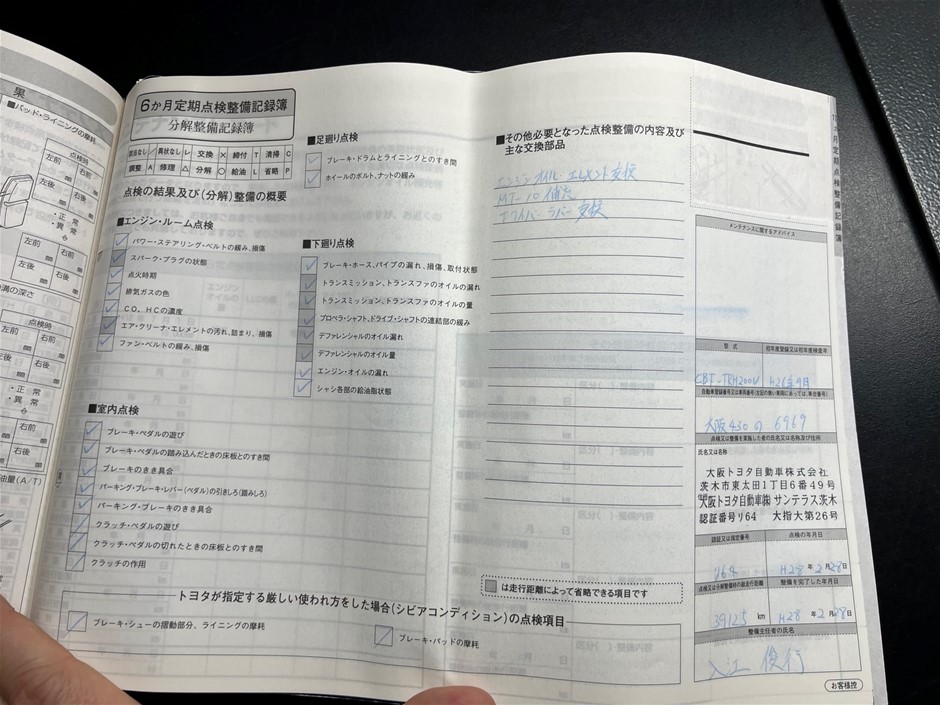 果
■パッド・ライニングの摩耗
点検時
左前
右前
左後
右後
・正 常
・異 常
左前
右前
左後
右後
溝の深さ
点検時
左前
右前
左後
右後
・正 常
・異 常
右前
右後
油量(A/T)
6か月定期点検整備記録簿
分解整備記録簿
該当なし ／ 異状なし レ 交換 × 締付 T 清掃 C
調整 A 修理 △ 分解 ○ 給油 L 省略 P
点検の結果及び(分解)整備の概要
■エンジン・ルーム点検
パワー・ステアリング・ベルトの緩み、損傷
スパーク・プラグの状態
点火時期
排気ガスの色
CO、HCの濃度
エア・クリーナ・エレメントの汚れ、詰まり、損傷
ファン・ベルトの緩み、損傷
■室内点検
ブレーキ・ペダルの遊び
ブレーキ・ペダルの踏み込んだときの床板とのすき間
ブレーキのきき具合
パーキング・ブレーキ・レバー(ペダル)の引きしろ(踏みしろ)
パーキング・ブレーキのきき具合
クラッチ・ペダルの遊び
クラッチ・ペダルの切れたときの床板とのすき間
クラッチの作用
■足廻り点検
ブレーキ・ドラムとライニングとのすき間
ホイールのボルト、ナットの緩み
■下廻り点検
ブレーキ・ホース、パイプの漏れ、損傷、取付状態
トランスミッション、トランスファのオイルの漏れ
トランスミッション、トランスファのオイルの量
プロペラ・シャフト、ドライブ・シャフトの連結部の緩み
デファレンシャルのオイル漏れ
デファレンシャルのオイル量
エンジン・オイルの漏れ
シャシ各部の給油脂状態
■その他必要となった点検整備の内容及び
主な交換部品
エンジンオイル・エレメント交換
MT-10 補充
ワイパーラバー交換
は走行距離によって省略できる項目です
トヨタが指定する厳しい使われ方をした場合(シビアコンディション)の点検項目
ブレーキ・シューの摺動部分、ライニングの摩耗
ブレーキ・パッドの摩耗
メンテナンスに関するアドバイス
型 式
初年度登録又は初年度検査年
CBF-TRH200V
H26年9月
自動車登録番号又は車両番号(左記の無い車両にあっては、車台番号)
大阪 430 の 6969
点検又は整備を実施した者の氏名又は名称及び住所
氏名又は名称
大阪トヨタ自動車株式会社
茨木市東太田1丁目6番49号
大阪トヨタ自動車㈱ サンテラス茨木
認証番号リ64 大指大第26号
認証又は指定番号
点検の年月日
リ64
H28 年 2 月 28 日
点検又は分解整備時の総走行距離
整備を完了した年月日
39125 km
H28 年 2 月 28 日
整備主任者の氏名
入江 俊行
お客様控
12か月定期点検整備記録簿